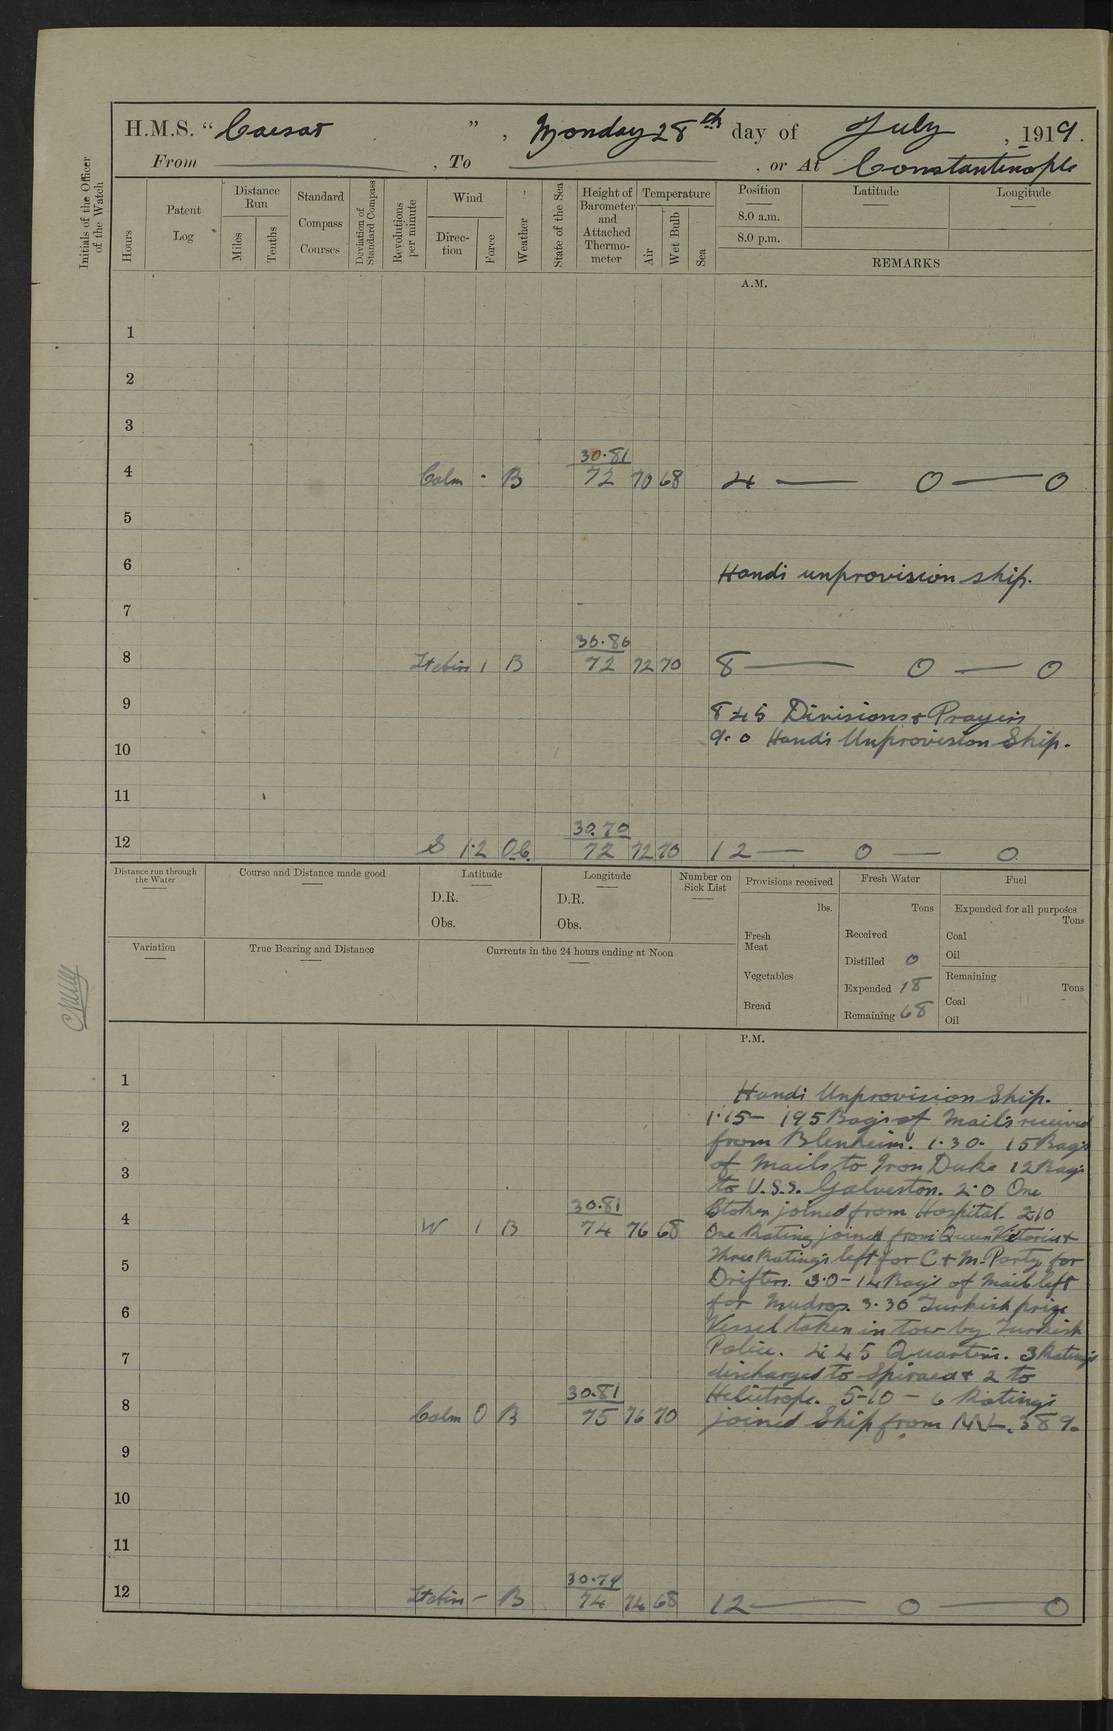 H.M.S. “ Caesar ” , Monday 28th day of July , 1919.
From , To , or At Constantinople
Initials of the Officer of the Watch
Hours
Patent Log
Distance Run
Miles
Tenths
Standard Compass Courses
Deviation of Standard Compass
Revolutions per minute
Wind
Direc-tion
Force
Weather
State of the Sea
Height of Barometer and Attached Thermo-meter
Temperature
Air
Wet Bulb
Sea
Position
8.0 a.m.
8.0 p.m.
Latitude
Longitude
REMARKS
A.M.
1
2
3
30.81
4 Calm - B 72 70 68 4 — 0 — 0
5
6 Hands unprovision ship.
7
30.80
8 Lt airs 1 B 72 72 70 8 — 0 — 0
9 8 45 Divisions & Prayers
9.0 Hands Unprovision Ship.
10
11
30.70
12 S 1.2 O.C. 72 72 70 12 — 0 — 0
Distance run through the Water
Course and Distance made good
Latitude
D.R.
Obs.
Longitude
D.R.
Obs.
Number on Sick List
Provisions received
lbs.
Fresh Meat
Vegetables
Bread
Fresh Water
Tons
Received
Distilled 0
Expended 18
Remaining 68
Fuel
Expended for all purposes
Tons
Coal
Oil
Remaining
Tons
Coal
Oil
Variation
True Bearing and Distance
Currents in the 24 hours ending at Noon
P.M.
1
Hands Unprovision Ship.
1.15 – 195 Bags of Mails received
2
from Blenheim. 1.30. 15 Bags
3
of Mails to Iron Duke 12 Bags
to U.S.S. Galveston. 2.0 One
30.81
Stoker joined from Hospital. 2.10
4 W 1 B 74 76 68
One Rating joined from Queen Victoria &
Three Ratings left for C & M. Party for
5
Drifters. 3.0 – 14 Bags of Mails left
for Mudros. 3.30 Turkish prize
6
Vessel taken in tow by Turkish
Police. 4.45 Quarters. 3 Ratings
7
discharged to Spiraea & 2 to
30.81
Heliotrope. 5-10 – 6 Ratings
8 Calm 0 B 75 76 70
joined Ship from M.L. 389.
9
10
11
30.79
12 Lt airs – B 74 74 68 12 — 0 — 0